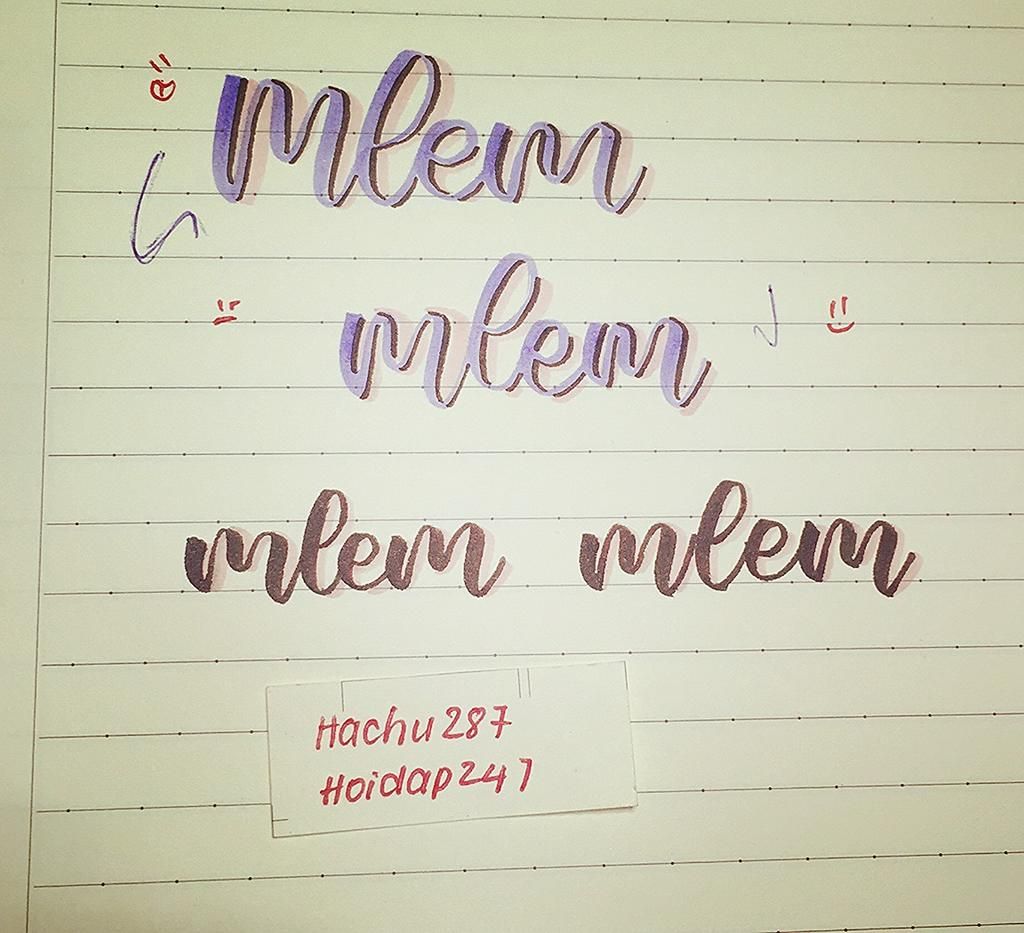 mlem
mlem
mlem mlem
Hachu287
Hoidap247